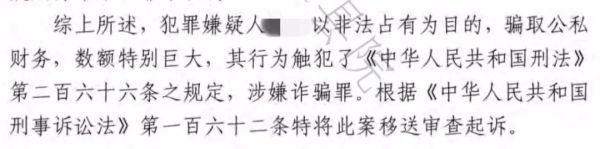 综上所述，犯罪嫌疑人 以非法占有为目的，骗取公私
财务，数额特别巨大，其行为触犯了《中华人民共和国刑法》
第二百六十六条之规定，涉嫌诈骗罪。根据《中华人民共和国
刑事诉讼法》第一百六十二条特将此案移送审查起诉。